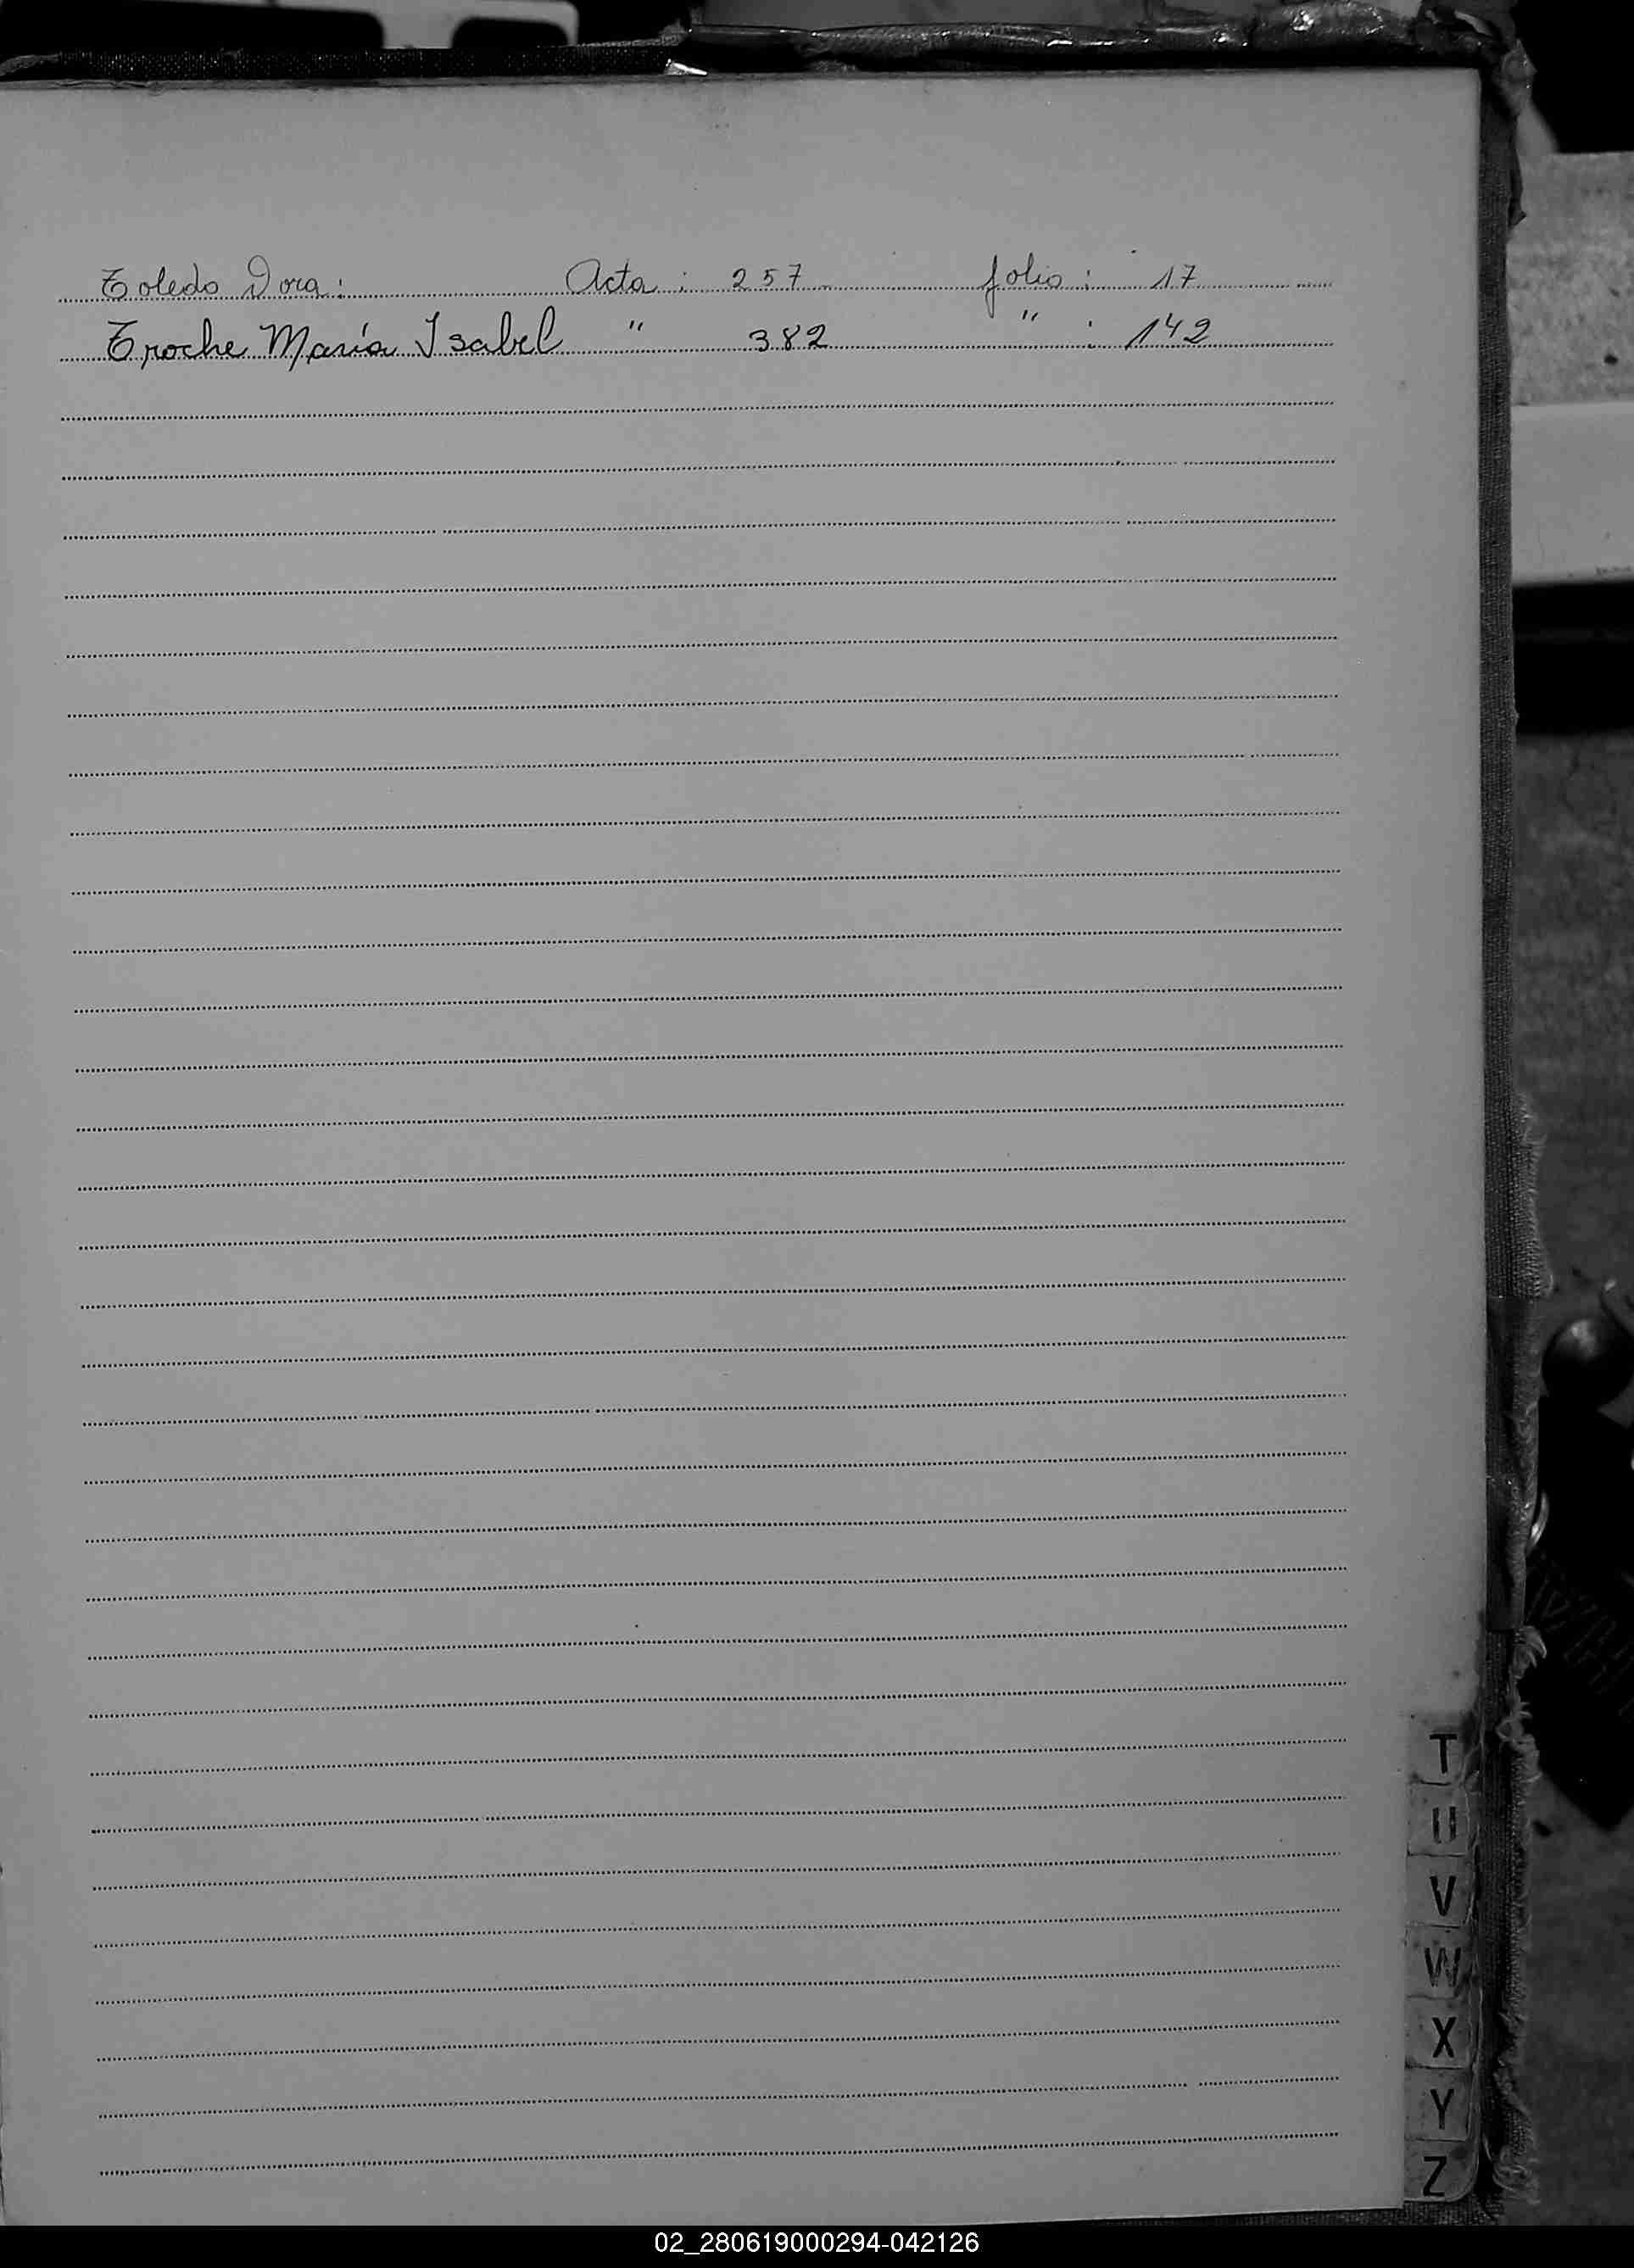 Toledo Dora: Acta: 257 folio: 17
Troche María Isabel " 382 " : 142
T
U
V
W
X
Y
Z
02_280619000294-042126